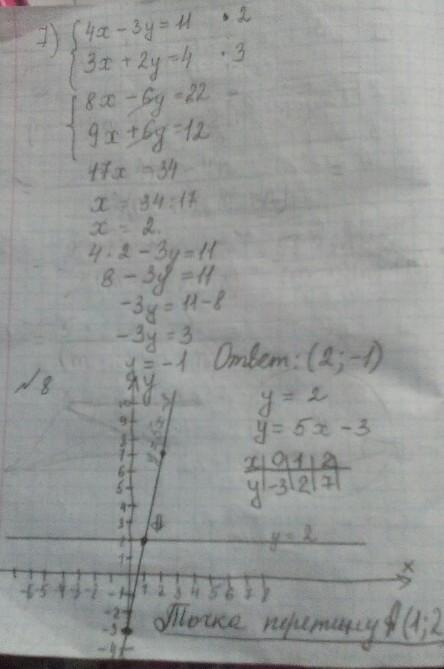 7) { 4x - 3y = 11 · 2
3x + 2y = 4 · 3
{ 8x - 6y = 22
9x + 6y = 12
17x = 34
x = 34:17
x = 2.
4 · 2 - 3y = 11
8 - 3y = 11
-3y = 11-8
-3y = 3
y = -1 Ответ: (2; -1)
№8
y
y = 2
y = 5x - 3
x | 0 | 1 | 2
y | -3 | 2 | 7
10
9
8
7
6
5
4
3
2
1
A
y = 2
x
-6 -5 -4 -3 -2 -1 1 2 3 4 5 6 7 8
-1
-2
-3
-4
Точка перетину A (1;2